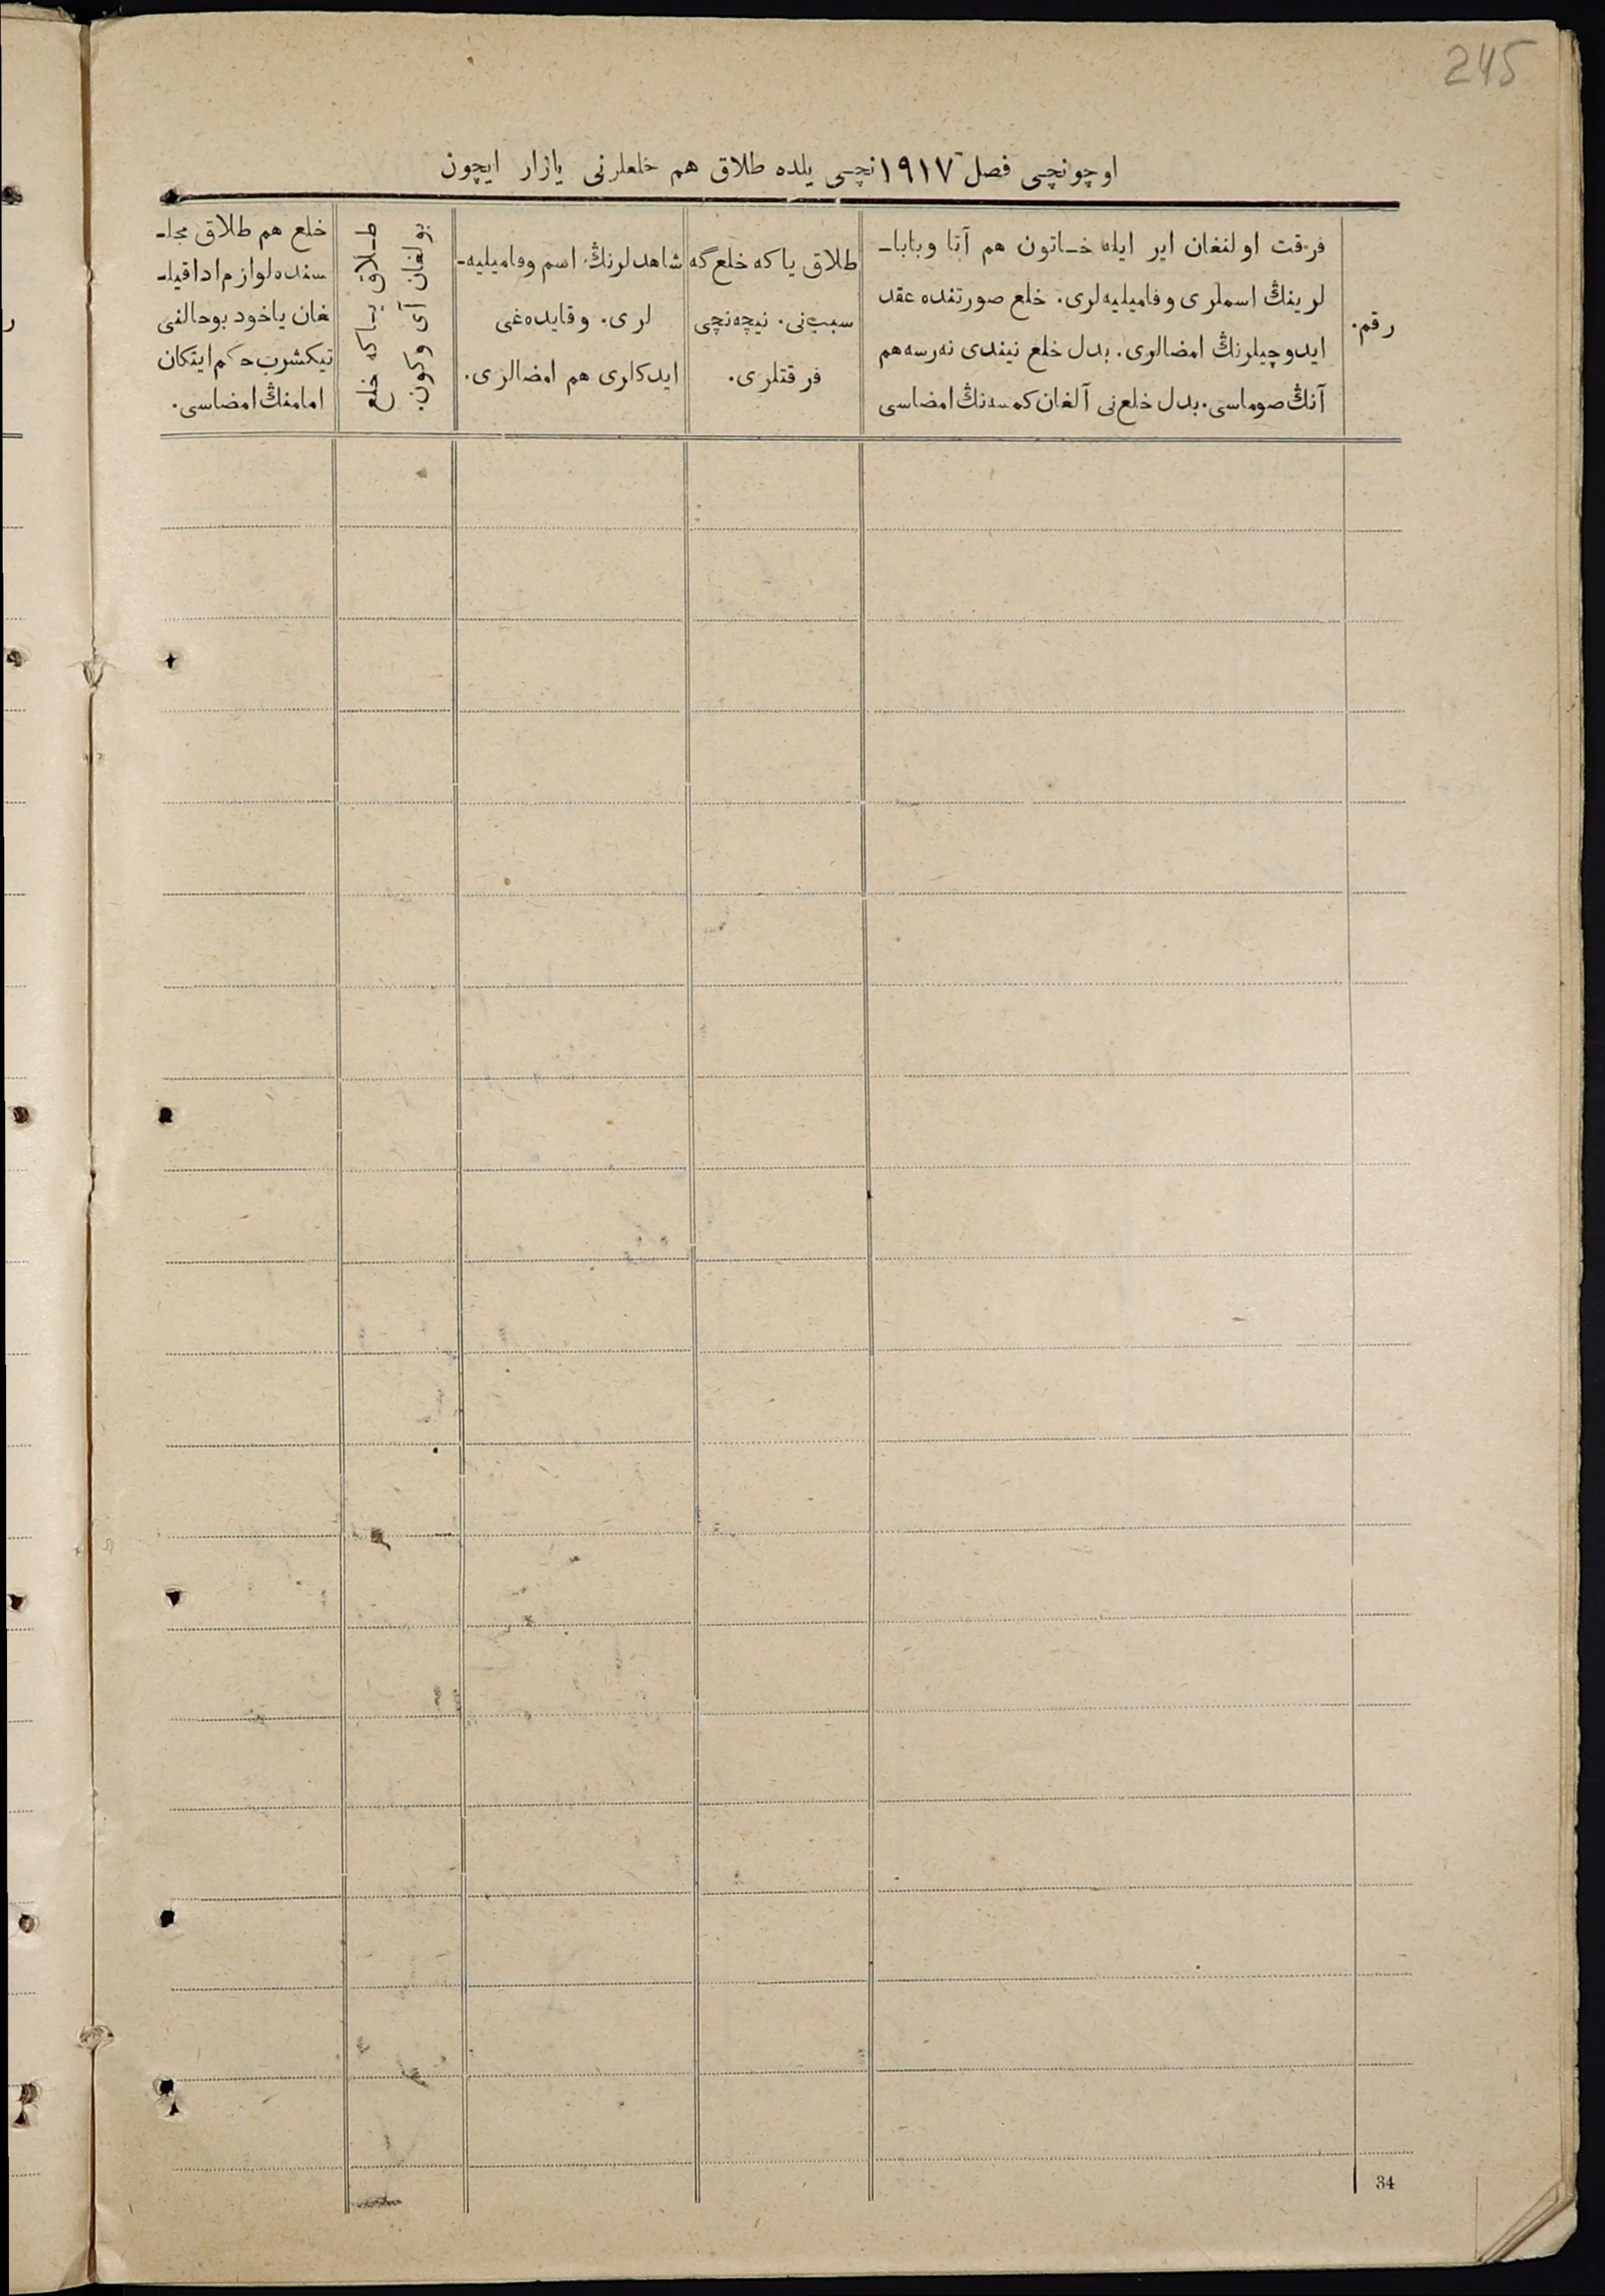 245
اوچونچی فصل ١٩١٧ نچی یلده طلاق هم خلعلرنی یازار ایچون
رقم.
فرقت اولنغان ایر ایله خـاتون هم آتا وبابا‌ـ
لرینڭ اسملری وفامیلیه‌لری. خلع صورتنده عقد
ایدوچیلرنڭ امضالری. بدل خلع نیندی نەرسه هم
آنڭ صوماسی. بدل خلع نی آلغان کمسه‌نڭ امضاسی
طلاق یا که خلع گه
سبب نی. نیچه‌نچی
فرقتلری.
شاهدلرنڭ اسم وفامیلیه‌ـ
لری. وقایده‌غی
ایدکلری هم امضالری.
طـلاق یـاکه خلع
بولغان آی وکون.
خلع هم طلاق مجلـ
سنده لوازم ادا قیلـ
غان یاخود بوحالنی
تیکشرب حکم ایتکان
امامنڭ امضاسی.
34